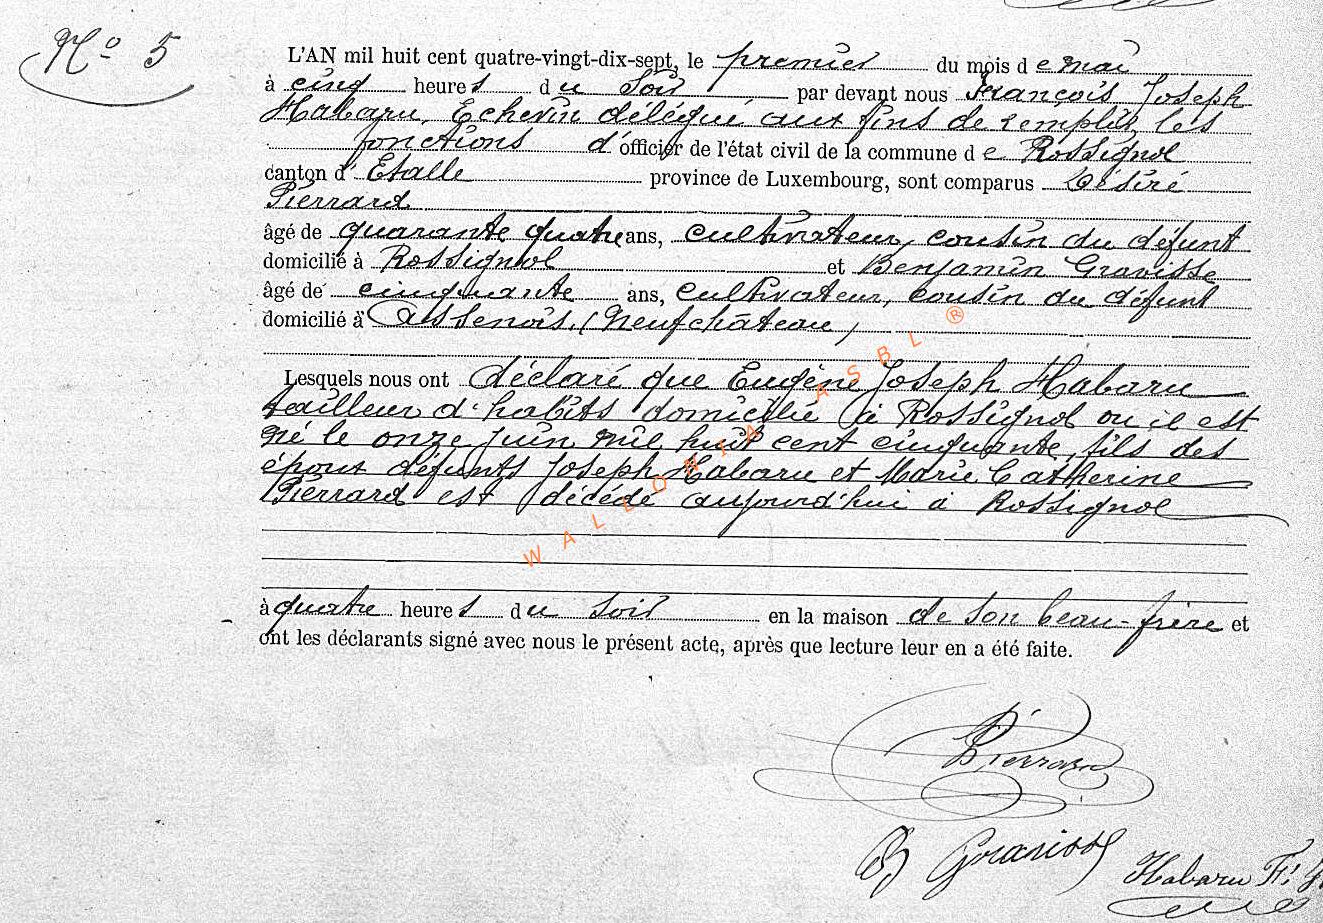 N° 5
L'AN mil huit cent quatre-vingt-dix-sept, le premier du mois de mai
à cinq heures du soir par devant nous François Joseph
Habaru, Echevin délégué aux fins de remplir les
fonctions d'officier de l'état civil de la commune de Rossignol
canton d'Etalle province de Luxembourg, sont comparus Désiré
Pierrard
âgé de quarante quatre ans, cultivateur, cousin du défunt
domicilié à Rossignol et Benjamin Gravisse
âgé de cinquante ans, cultivateur, cousin du défunt
domicilié à Assenois, (Neufchâteau)
Lesquels nous ont déclaré que Eugène Joseph Habaru
tailleur d'habits domicilié à Rossignol ou il est
né le onze juin mil huit cent cinquante, fils des
époux défunts Joseph Habaru et Marie Catherine
Pierrard est décédé aujourd'hui à Rossignol
à quatre heures du soir en la maison de son beau-frère et
ont les déclarants signé avec nous le présent acte, après que lecture leur en a été faite.
WALLONIA ASBL ®
D Pierrard
B Gravisse
Habaru F.